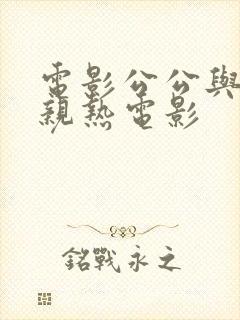 電影公公與
親熱電影
銘戰永之